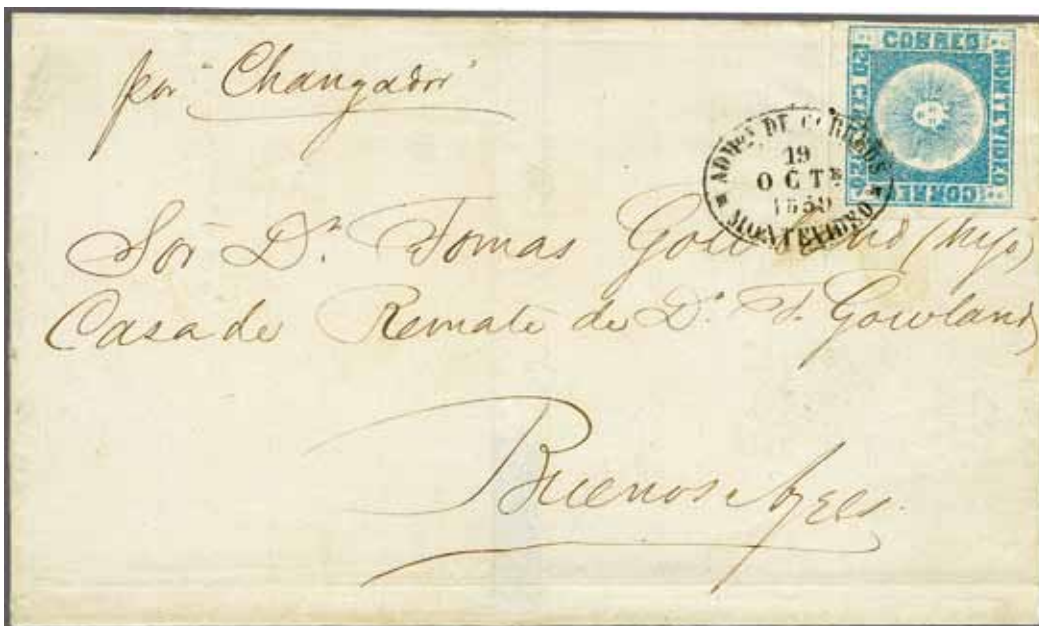 por "Changador"
CORREO
MONTEVIDEO
120
120
CORREO
ADMON DE CORREOS
19
OCTE
1859
MONTEVIDEO
Sor Dn Tomas Gowland (hijo)
Casa de Remate de Dn T. Gowland
Buenos Ayres.